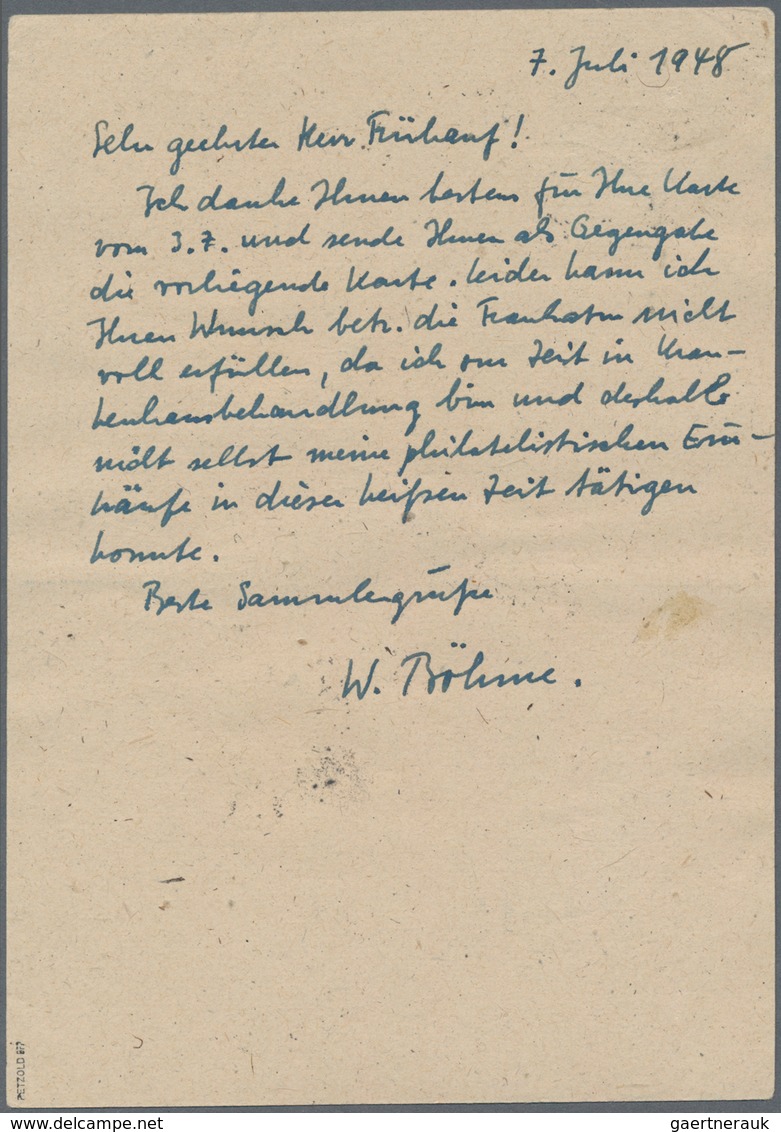 7. Juli 1948
Sehr geehrter Herr Frühauf!
Ich danke Ihnen bestens für Ihre Karte
vom 3.7. und sende Ihnen als Gegengabe
die vorliegende Karte. Leider kann ich
Ihren Wunsch betr. die Frankatur nicht
voll erfüllen, da ich zur Zeit in Kran-
kenhausbehandlung bin und deshalb
nicht selbst meine philatelistischen Ein-
käufe in dieser heißen Zeit tätigen
konnte.
Beste Sammlergrüße
W. Böhme.
PETZOLD 977
gaertnerauk